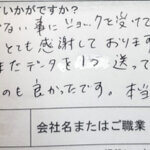 ていかがですか？
ない事にショックを受けて
とても感謝しております
またデータを1つ送って
のも良かったです。本当
会社名またはご職業